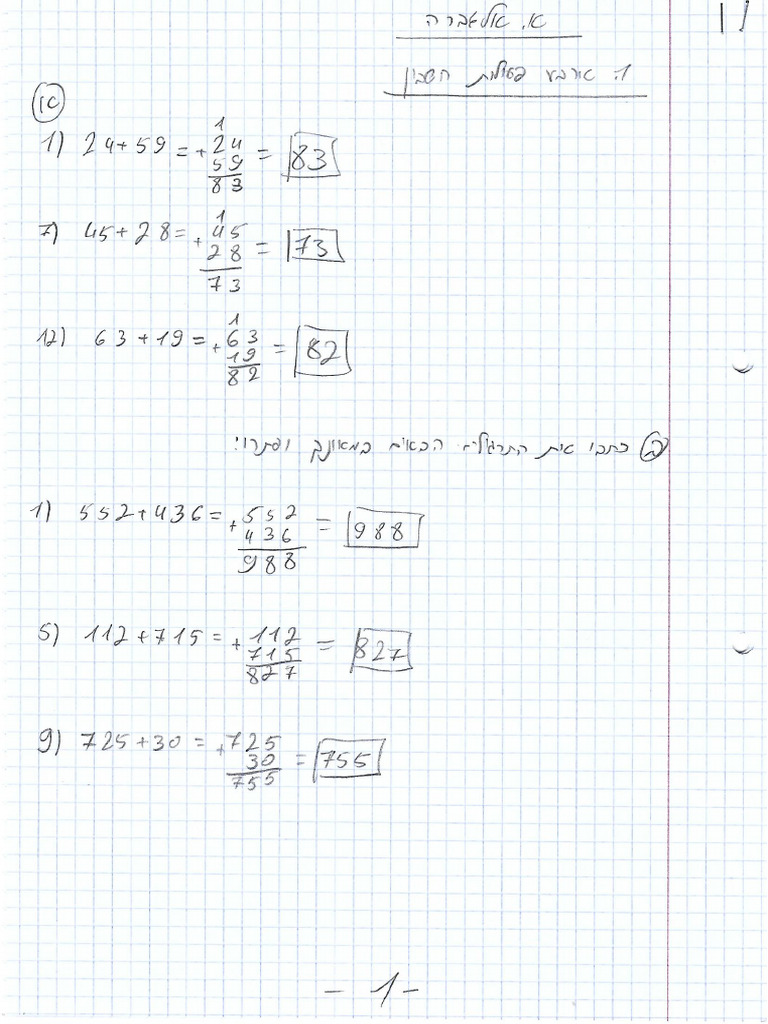 א. אלגברה
1. ארבע פעולות חשבון
א
1) 24+59 = + 24 59 83 = 83
1
7) 45+28 = + 45 28 73 = 73
1
12) 63+19 = + 63 19 82 = 82
1
ב כתבו את התרגילים הבאים במאונך ופתרו:
1) 552+436 = + 552 436 988 = 988
5) 112+715 = + 112 715 827 = 827
9) 725+30 = + 725 30 755 = 755
- 1 -